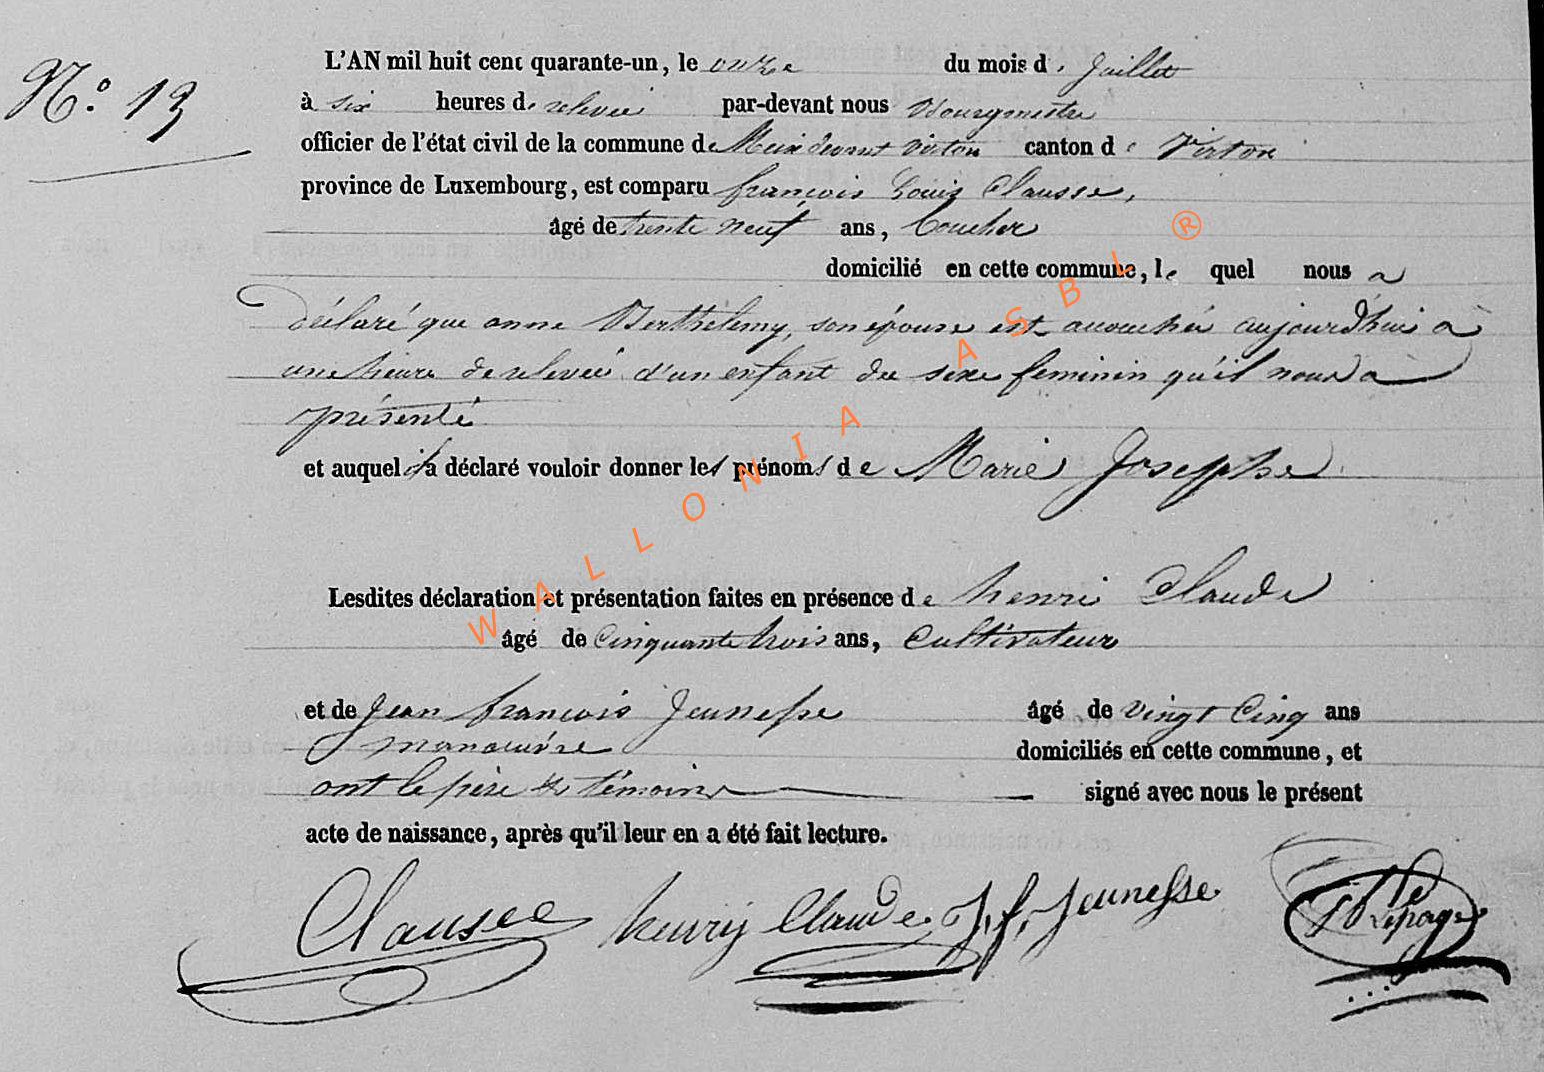 N.° 13
L'AN mil huit cent quarante-un, le onze du mois de Juillet
à six heures de relevée par-devant nous Bourgmestre
officier de l'état civil de la commune de Meix devant Virton canton de Virton
province de Luxembourg, est comparu françois Louis Clausse,
âgé de trente neuf ans, boucher
domicilié en cette commune, le quel nous a
déclaré que anne Berthélemy, son épouse est accouchée aujourd'hui à
une heure de relevée d'un enfant du sexe feminin qu'il nous a
présenté
et auquel il a déclaré vouloir donner les prénoms de Marie Josephe
Lesdites déclaration et présentation faites en présence de henri Claude
âgé de Cinquante trois ans, Cultivateur
et de Jean françois Jeunesse âgé de vingt Cinq ans
manoeuvre domiciliés en cette commune, et
ont le père & témoins signé avec nous le présent
acte de naissance, après qu'il leur en a été fait lecture.
Clausse henrij Claude J. f. Jeunesse Lepage
WALLONIA ASBL ®